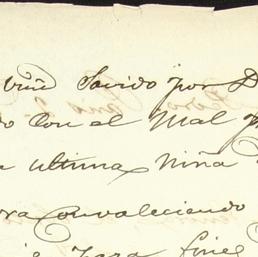 Savido por D
do Con el Mal
ultima Niña
ora Convaleciendo
para fines